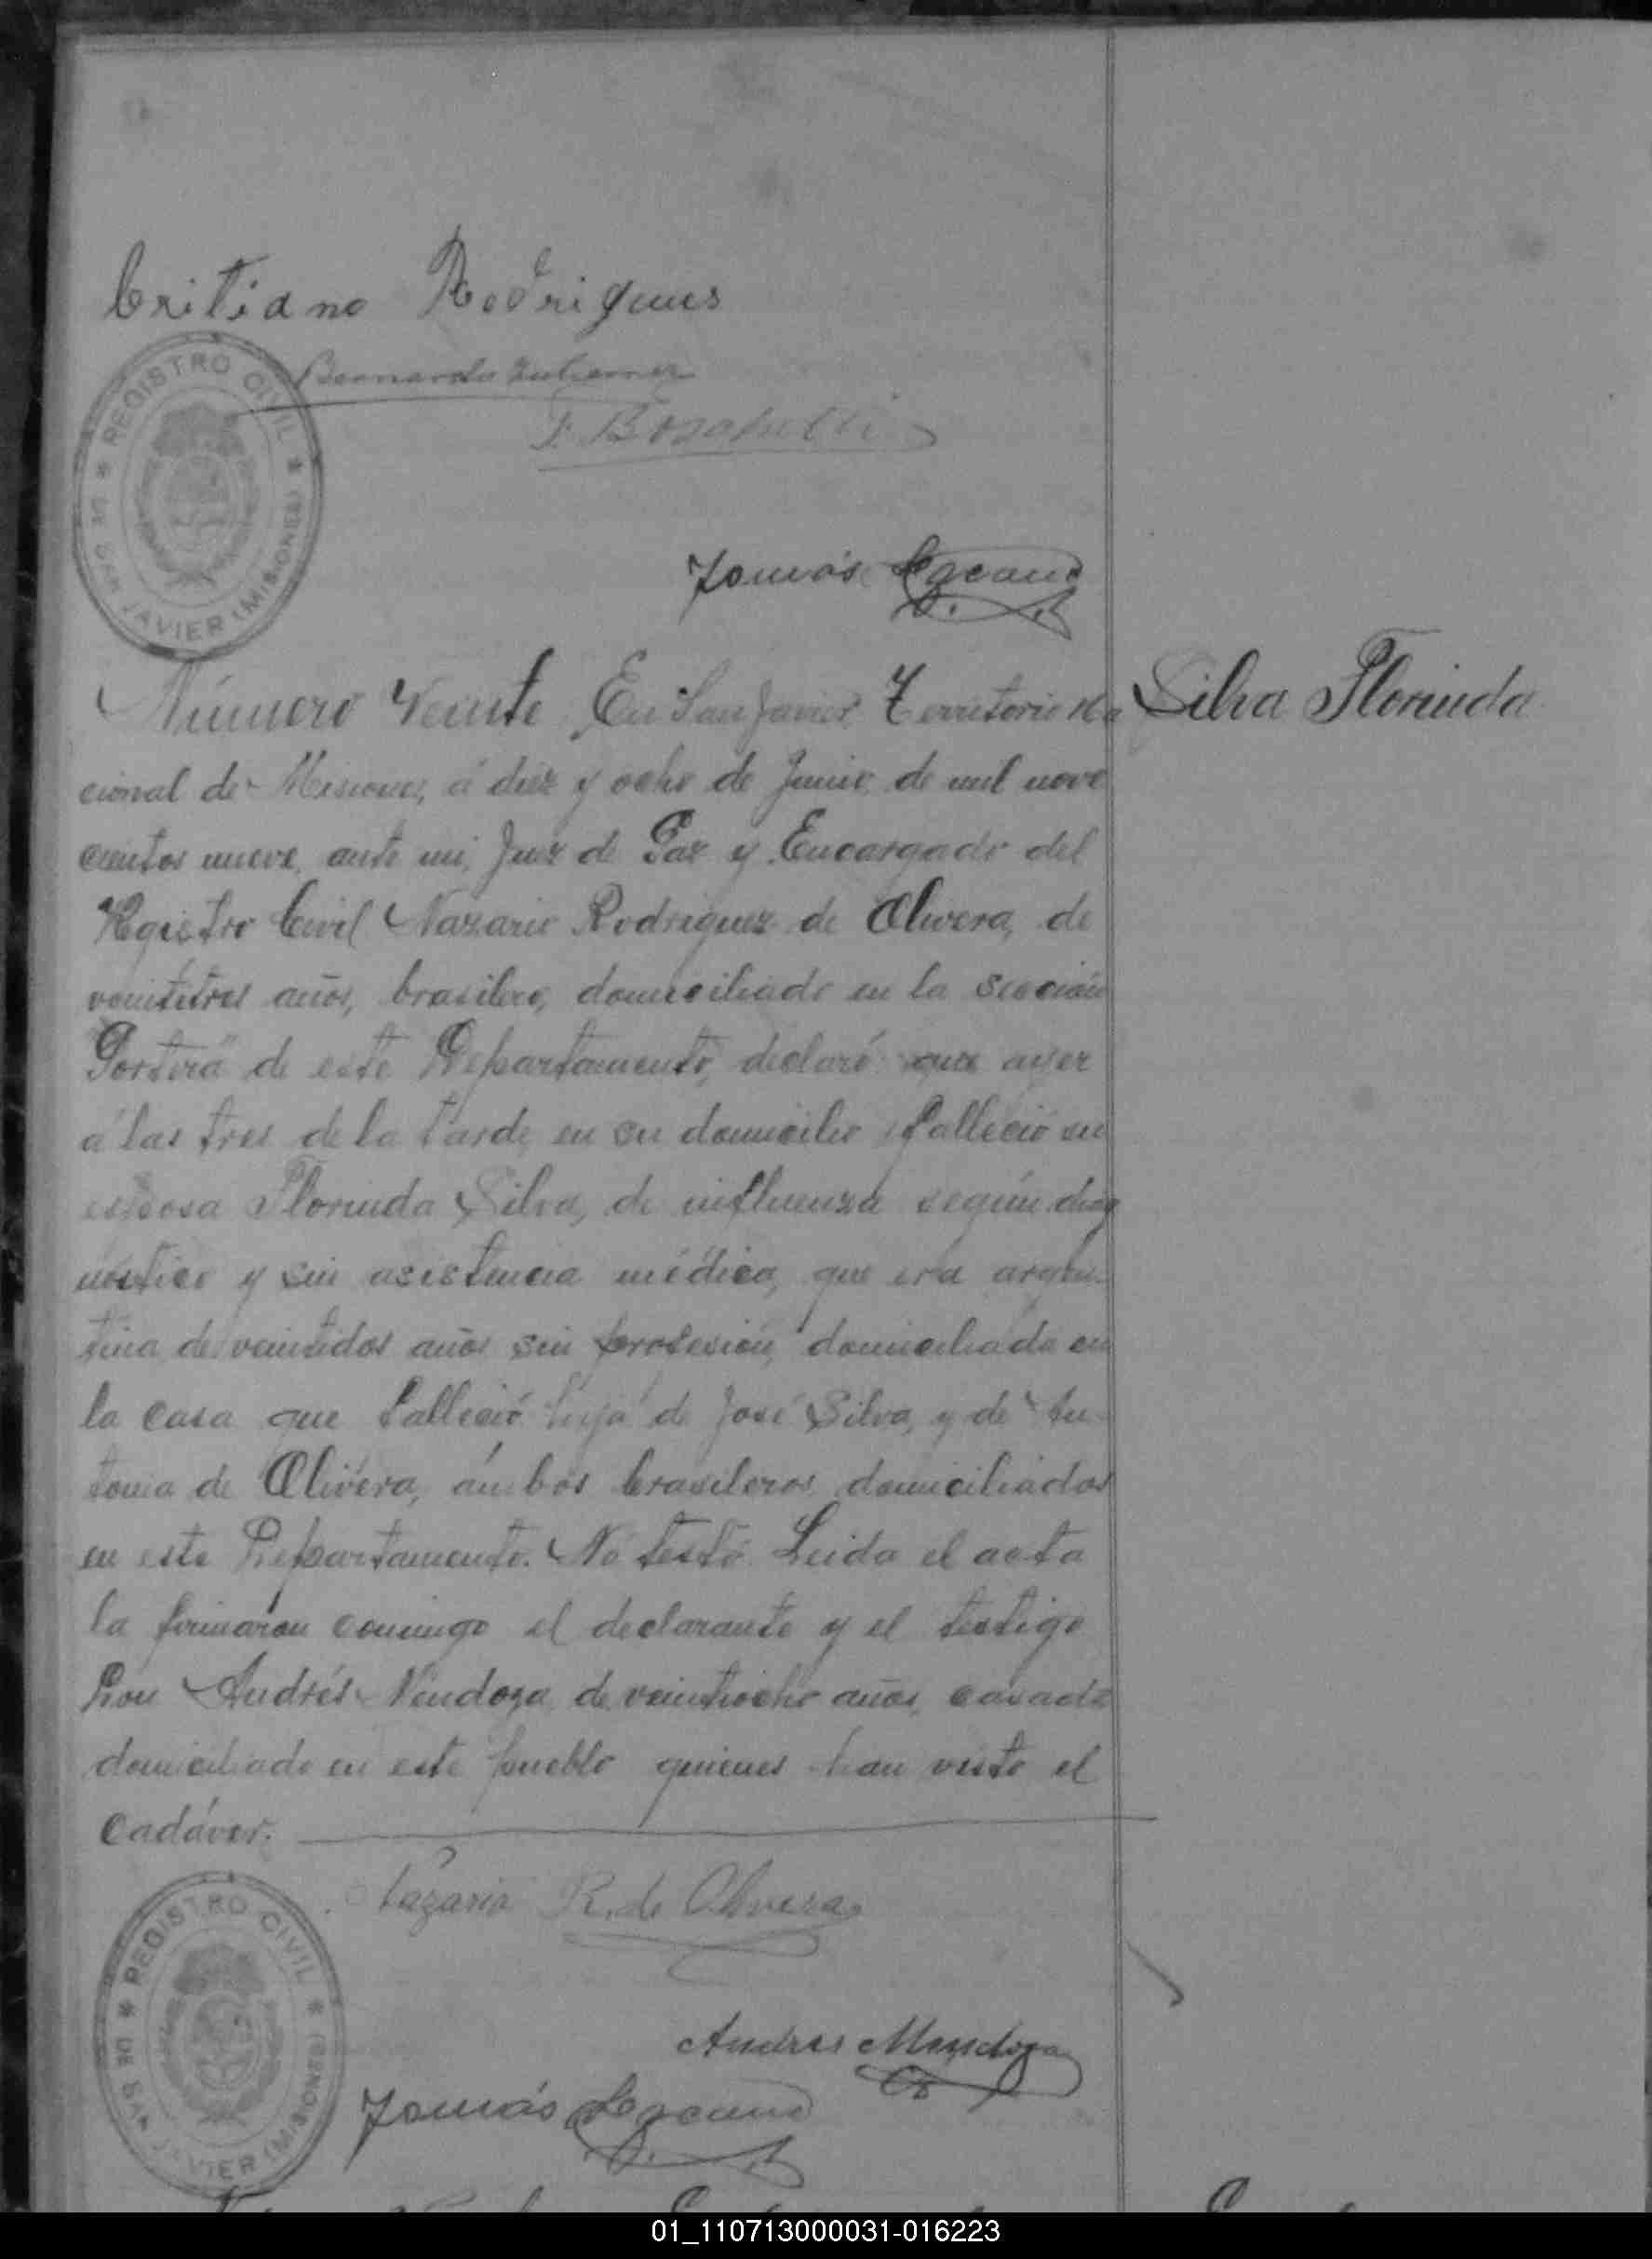 Critiano Rodrigues
REGISTRO CIVIL
DE SAN JAVIER (MISIONES)
Bernardo
Tomás Lezcano
Número Veinte En San Javier Territorio Na
Silva Florinda
cional de Misiones, á diez y ocho de Junio de mil nove
cientos nueve, ante mi, Juez de Paz y Encargado del
Registro Civil Nazario Rodriguez de Olivera, de
veintitres años, brasilero, domiciliado en la sección
Portera de este Departamento, declaró que ayer
á las tres de la tarde, en su domicilio, falleció su
esposa Florinda Silva, de influenza según diag
nóstico y sin asistencia médica, que era argen-
tina de veintidos años sin profesión, domiciliada en
la casa que falleció hija de José Silva, y de An-
tonia de Olivera, ámbos brasileros, domiciliados
en este Departamento. No testó. Leida el acta
la firmaron conmigo el declarante y el testigo
Don Andrés Mendoza, de veintiocho años, casado
domiciliado en este pueblo quienes han visto el
cadáver.
Nazario R. de Olivera
REGISTRO CIVIL
DE SAN JAVIER (MISIONES)
Andres Mendoza
Tomás Lezcano
01_110713000031-016223